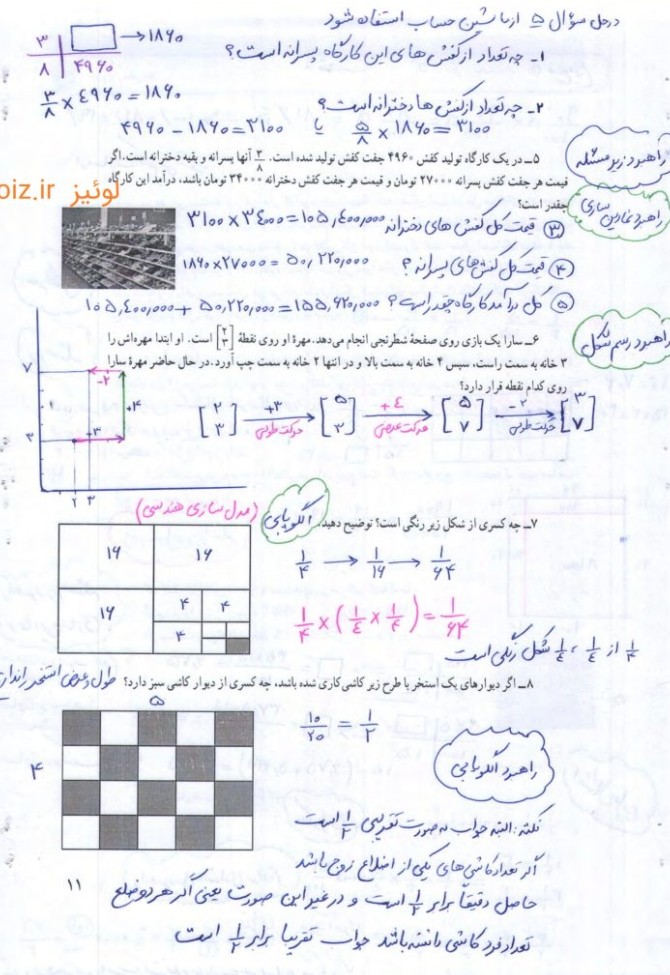 در حل سؤال ۵ از ماشین حساب استفاده شود
۳ □ → ۱۸۶۰
۸ ۴۹۶۰
۱- چه تعداد از کفش های این کارگاه پسرانه است؟
۳/۸ × ۴۹۶۰ = ۱۸۶۰
۲- چه تعداد از کفش ها دخترانه است؟
۴۹۶۰ - ۱۸۶۰ = ۳۱۰۰ یا ۵/۸ × ۱۸۶۰ = ۳۱۰۰
راهبرد زیر مسئله
۵ــ در یک کارگاه تولید کفش ۴۹۶۰ جفت کفش تولید شده است. ۳/۸ آنها پسرانه و بقیه دخترانه است. اگر
قیمت هر جفت کفش پسرانه ۲۷۰۰۰ تومان و قیمت هر جفت کفش دخترانه ۳۴۰۰۰ تومان باشد، درآمد این کارگاه
چقدر است؟
لوئیز oiz.ir
راهبرد نمادین سازی
③ قیمت کل کفش های دخترانه ۳۱۰۰ × ۳۴۰۰ = ۱۰۵,۴۰۰,۰۰۰
④ قیمت کل کفش های پسرانه؟ ۱۸۶۰ × ۲۷۰۰۰ = ۵۰,۲۲۰,۰۰۰
⑤ کل درآمد کارگاه چقدر است؟ ۱۰۵,۴۰۰,۰۰۰ + ۵۰,۲۲۰,۰۰۰ = ۱۵۵,۶۲۰,۰۰۰
راهبرد رسم شکل
۶ــ سارا یک بازی روی صفحهٔ شطرنجی انجام می‌دهد. مهرهٔ او روی نقطهٔ [۲ ۳] است. او ابتدا مهره‌اش را
۳ خانه به سمت راست، سپس ۴ خانه به سمت بالا و در انتها ۲ خانه به سمت چپ آورد. در حال حاضر مهرهٔ سارا
روی کدام نقطه قرار دارد؟
[۲ ۳] +۳ حرکت طولی → [۵ ۳] +۴ حرکت عرضی → [۵ ۷] -۲ حرکت طولی → [۳ ۷]
۷
-۲
+۴
۳
+۳
۲ ۳
۷ــ چه کسری از شکل زیر رنگی است؟ توضیح دهید.
الگویابی (مدل سازی هندسی)
۱۶ ۱۶
۱۶ ۴ ۴
۴
۱/۴ → ۱/۱۶ → ۱/۶۴
۱/۴ × (۱/۴ × ۱/۴) = ۱/۶۴
۱/۴ از ۱/۴، ۱/۴ شکل رنگی است
۸ــ اگر دیوارهای یک استخر با طرح زیر کاشی‌کاری شده باشد، چه کسری از دیوار کاشی سبز دارد؟
طول و عرض استخر
۵
۴
۱۰/۲۰ = ۱/۲
راهبرد الگویابی
نکته: البته جواب به صورت تقریبی ۱/۲ است
اگر تعداد کاشی های یکی از اضلاع زوج باشد
حاصل دقیقاً برابر ۱/۲ است و در غیر این صورت یعنی اگر هر دو ضلع
تعداد فرد کاشی داشته باشد جواب تقریبا برابر ۱/۲ است
۱۱